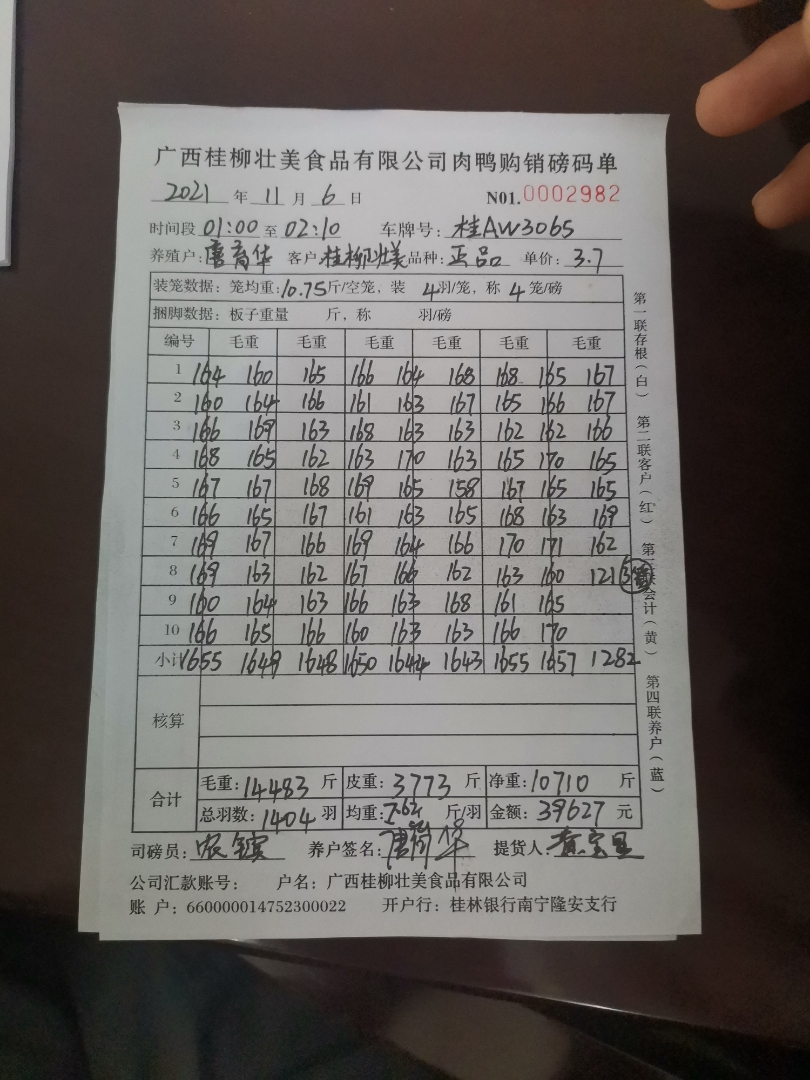 广西桂柳壮美食品有限公司肉鸭购销磅码单
2021 年 11 月 6 日 N01.0002982
时间段 01:00 至 02:10 车牌号: 桂AW3065
养殖户: 唐育华 客户: 桂柳壮美 品种: 正品 单价: 3.7
装笼数据: 笼均重: 10.75斤/空笼, 装 4羽/笼, 称 4 笼/磅
捆脚数据: 板子重量 斤, 称 羽/磅
编号 毛重 毛重 毛重 毛重 毛重
1 164 160 165 166 164 168 168 165 167
2 160 164 166 161 163 167 165 166 167
3 166 169 163 168 163 163 162 162 166
4 168 165 162 163 170 163 165 170 165
5 167 167 168 169 165 158 167 165 165
6 166 165 167 161 163 165 168 163 169
7 169 167 166 169 164 166 170 171 162
8 169 163 162 167 166 162 163 160 121
9 160 164 163 166 163 168 161 165
10 166 165 166 160 163 163 166 170
小计 1655 1649 1648 1650 1644 1643 1655 1657 1282
核算
合计 毛重: 14483 斤 皮重: 3773 斤 净重: 10710 斤
总羽数: 1404 羽 均重: 7.63 斤/羽 金额: 39627 元
司磅员: 养户签名: 提货人:
公司汇款账号: 户名: 广西桂柳壮美食品有限公司
账 户: 660000014752300022 开户行: 桂林银行南宁隆安支行
第一联存根(白) 第二联客户(红) 第三联会计(黄) 第四联养户(蓝)